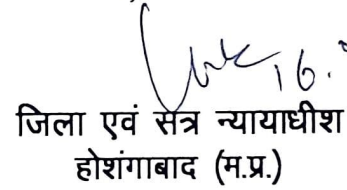 16.
जिला एवं सत्र न्यायाधीश
होशंगाबाद (म.प्र.)